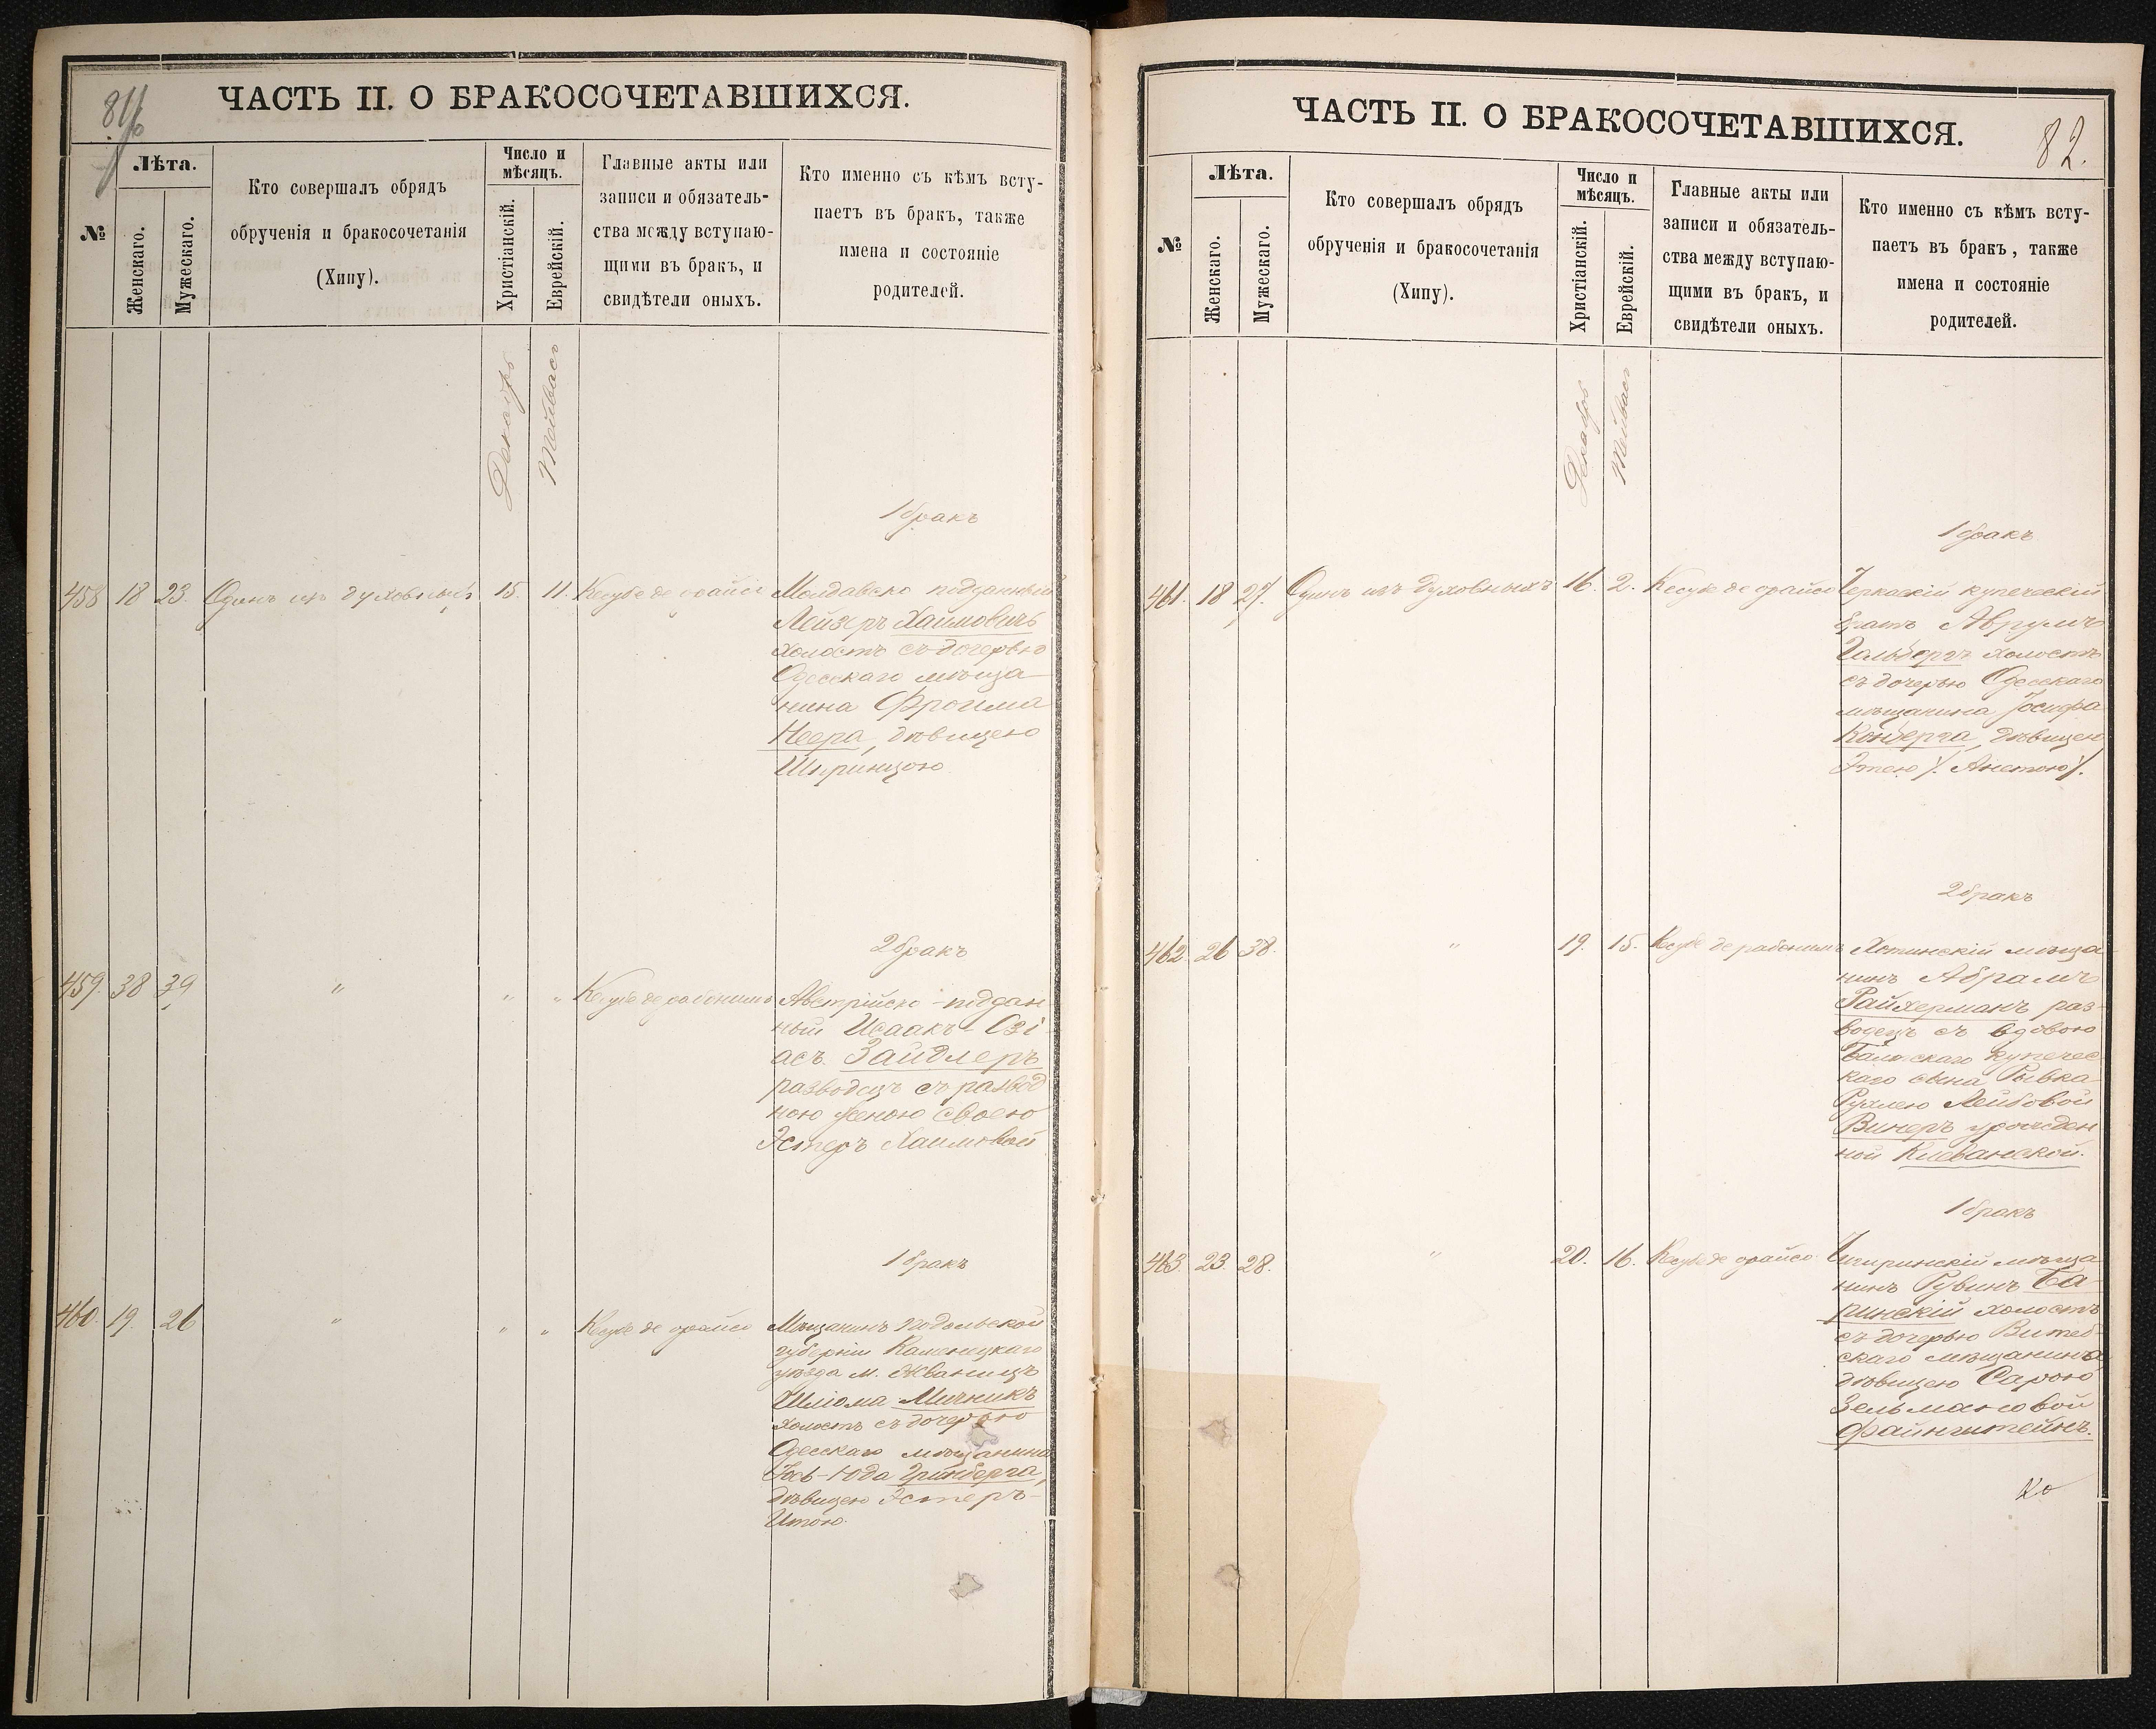 81/б
ЧАСТЬ II. О БРАКОСОЧЕТАВШИХСЯ.
№
Лѣта.
Женскаго.
Мужескаго.
Кто совершалъ обрядъ
обрученія и бракосочетанія
(Хипу).
Число и
мѣсяцъ.
Христіанскій.
Еврейскій.
Главные акты или
записи и обязатель-
ства между вступаю-
щими въ бракъ, и
свидѣтели оныхъ.
Кто именно съ кѣмъ всту-
паетъ въ бракъ, также
имена и состояніе
родителей.
Декабрь
Тейвасъ
1 бракъ
458 18 23. Одинъ изъ духовныхъ 15. 11. Кесубе де орайсо Молдавско подданный
Лейзеръ Хаимовичъ
холостъ съ дочерью
Одесскаго мѣща-
нина Фроима
Неера, дѣвицею
Шпринцою
2 бракъ
459. 38 39 " " " Кесубе де рабонимъ Австрійско-поддан
ный Исаакъ-Озі
асъ Зайдлеръ
разводецъ съ развод
ною женою своею
Эстеръ Хаимовой
1 бракъ
460. 19. 26 " " " Кесубе де орайсо Мѣщанинъ Подольской
губерніи Каменецкаго
уѣзда м. Жванецъ
Шліома Мичникъ
холостъ съ дочерью
Одесскаго мѣщанина
Іось-Юда Гринберга,
дѣвицею Эстеръ-
Итою.
ЧАСТЬ II. О БРАКОСОЧЕТАВШИХСЯ.
82.
№
Лѣта.
Женскаго.
Мужескаго.
Кто совершалъ обрядъ
обрученія и бракосочетанія
(Хипу).
Число и
мѣсяцъ.
Христіанскій.
Еврейскій.
Главные акты или
записи и обязатель-
ства между вступаю-
щими въ бракъ, и
свидѣтели оныхъ.
Кто именно съ кѣмъ всту-
паетъ въ бракъ, также
имена и состояніе
родителей.
Декабрь
Тейвасъ
1 бракъ
461. 18 27. Одинъ изъ духовныхъ 16. 2. Кесубе де орайсо Черкаскій купеческій
братъ Аврумъ
Гальберъ холостъ
съ дочерью Одесскаго
мѣщанина Іосифа
Конберга, дѣвицею
Этею /. Анетою /.
2 бракъ
462 26 38. " 19. 15. Кесубе де рабонимъ Хотинскій мѣща-
нинъ Абрамъ
Райхерманъ раз-
водецъ съ вдовою
Балтскаго купечес-
каго сына Рывка
Рухлею Лейбовой
Винеръ урожден
ной Клеванской.
1 бракъ
463. 23. 28. " 20. 16. Кесубе де орайсо Чигиринскій мѣща
нинъ Рувинъ Ба-
ринскій холостъ
съ дочерью Витеб-
скаго мѣщанина
дѣвицею Сарою
Зельмановой
Файнштейнъ.